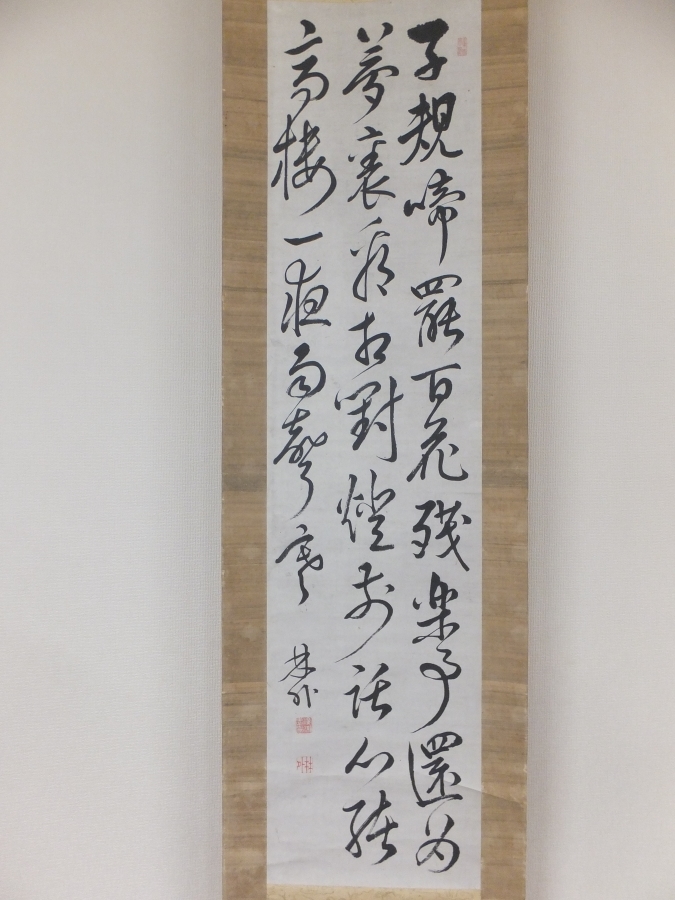 子規啼罷百花殘樂事還為
夢裏看相對燈前話心緒
高樓一夜雨聲寒
林外